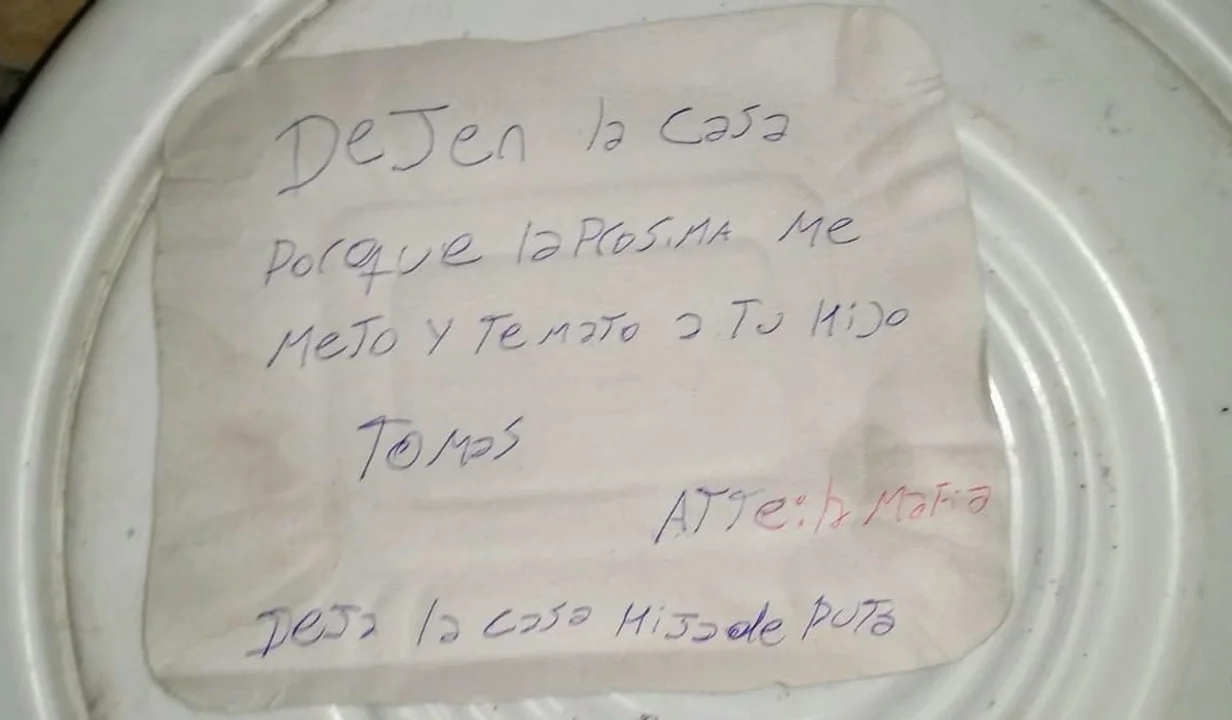 DeJen la casa
Porque la ProsiMA Me
MeTo Y Te maTo a Tu HiJo
TOMas
ATTe: la MaFia
DeJa la casa HiJa de PuTa